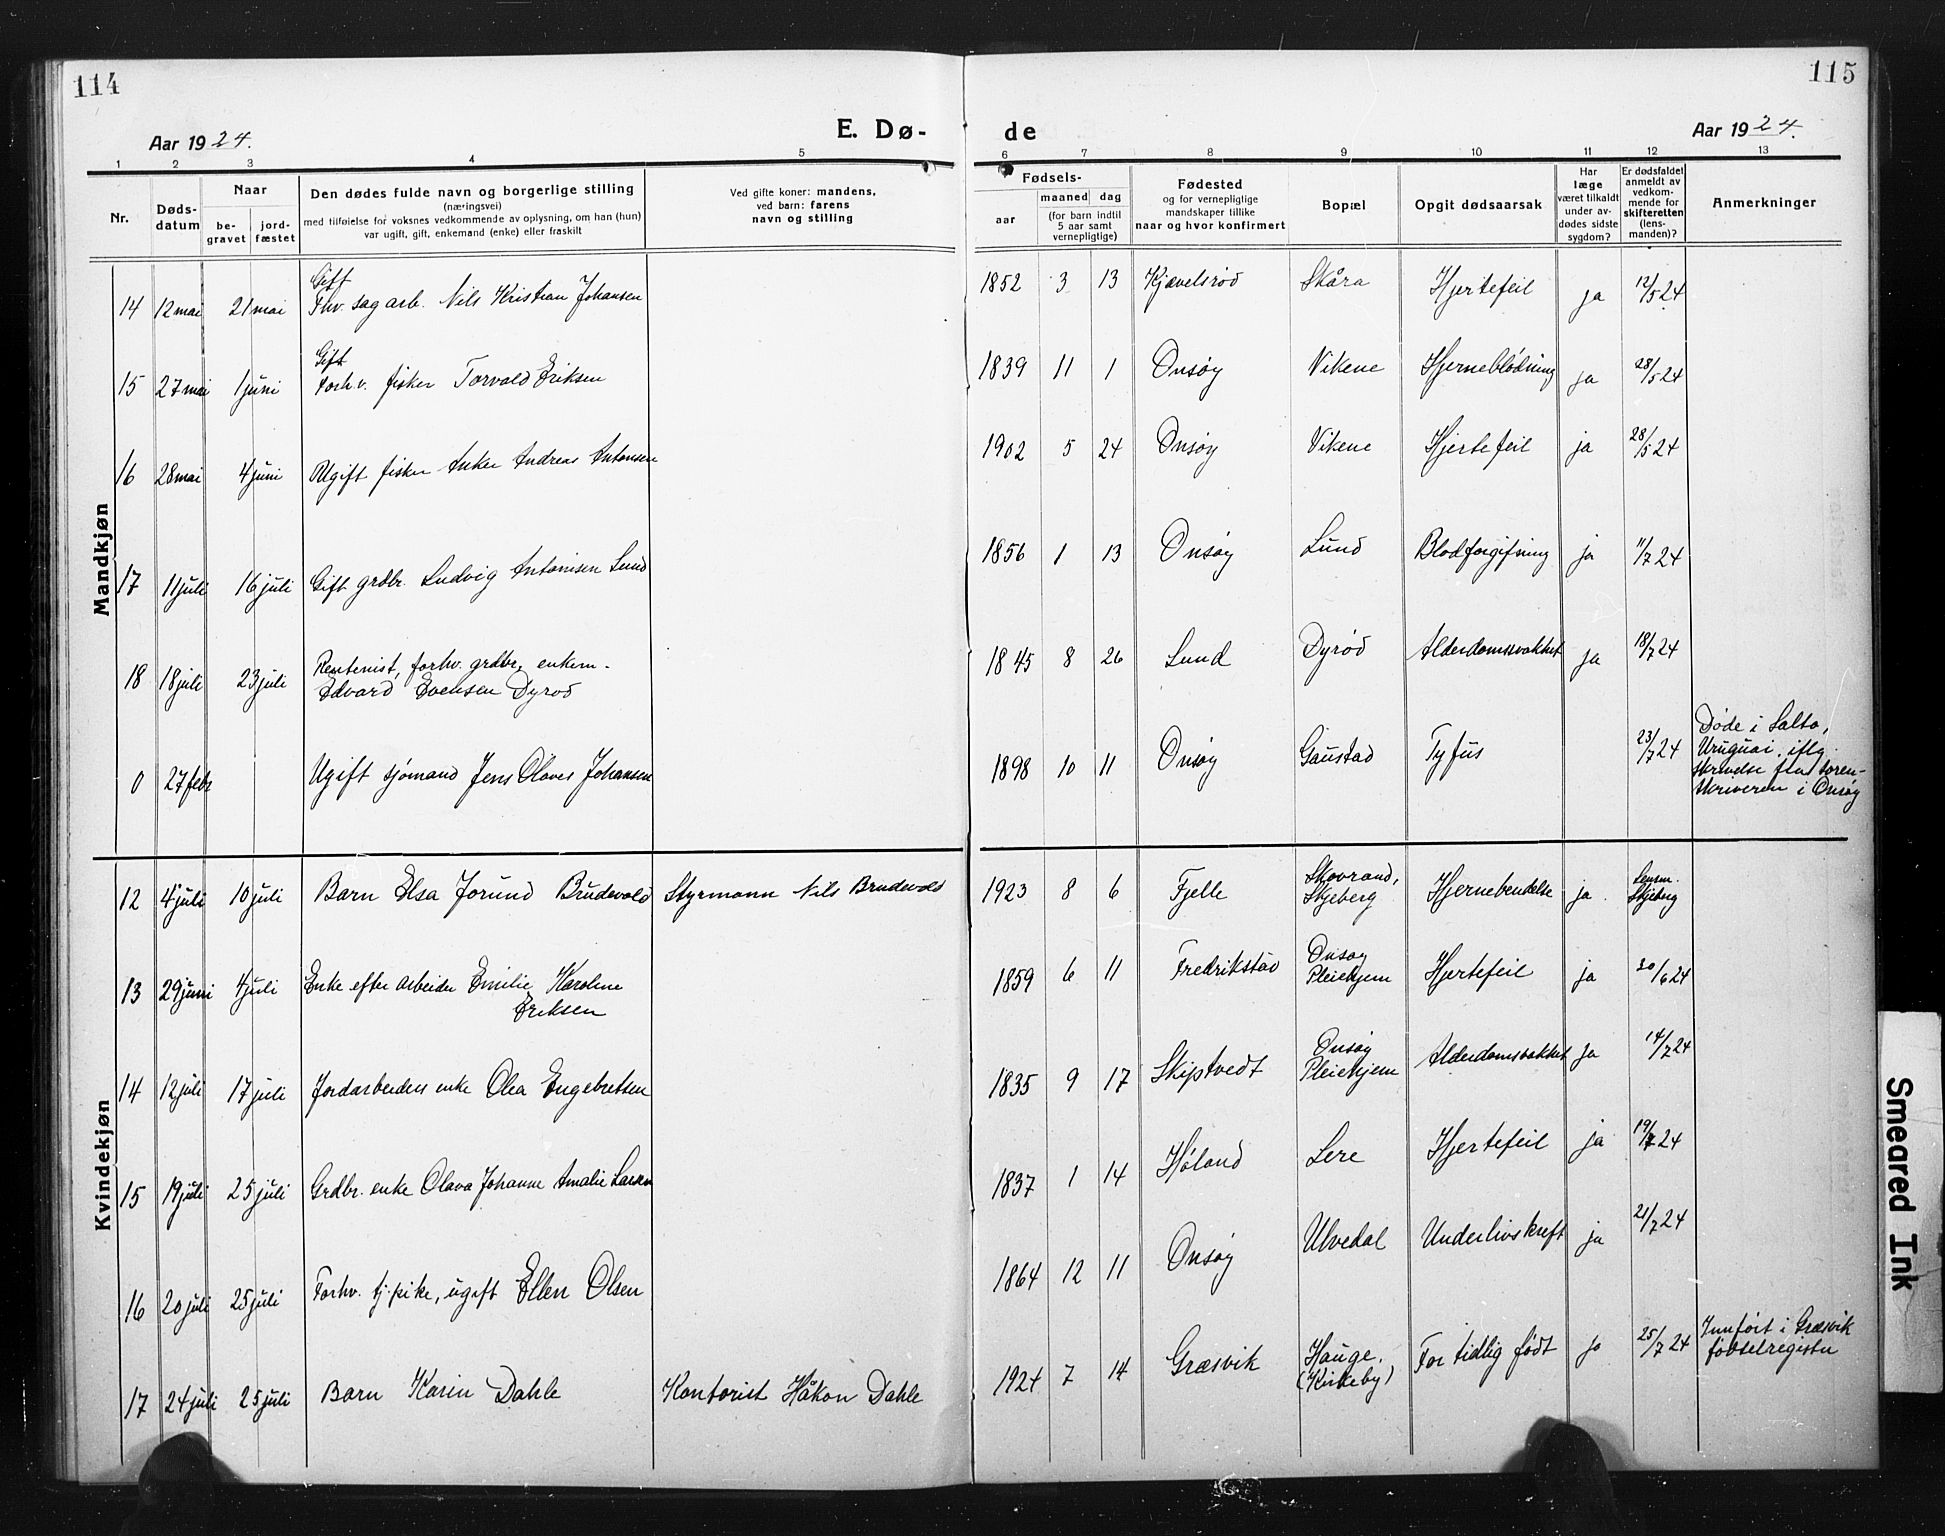 114
115
Aar 1924.
E. Dø-
de
Aar 1924.
1 2 3 4 5 6 7 8 9 10 11 12 13
Nr.
Døds-
datum
Naar
be-
gravet
jord-
fæstet
Den dødes fulde navn og borgerlige stilling
(næringsvei)
med tilføielse for voksnes vedkommende av oplysning, om han (hun)
var ugift, gift, enkemand (enke) eller fraskilt
Ved gifte koner: mandens,
ved barn: farens
navn og stilling
Fødsels-
aar
maaned dag
(for barn indtil
5 aar samt
vernepligtige)
Fødested
og for vernepligtige
mandskaper tillike
naar og hvor konfirmert
Bopæl
Opgit dødsaarsak
Har
læge
været tilkaldt
under av-
dødes sidste
sygdom?
Er dødsfaldet
anmeldt av
vedkom-
mende for
skifteretten
(lens-
manden)?
Anmerkninger
Mandkjøn
Gift
14 12 mai 21 mai Fhv. sagarb. Nils Kristian Johansen 1852 3 13 Kjævelsrød Skåra Hjertefeil ja 12/5 24
Gift
15 27 mai 1 juni Forhv. fisker Torvald Eriksen 1839 11 1 Onsøy Vikene Hjerneblödning ja 28/5 24
16 28 mai 4 juni Ugift fisker Anker Andreas Antonsen 1902 5 24 Onsøy Vikene Hjertefeil ja 28/5 24
17 11 juli 16 juli Gift grdbr. Ludvig Antonisen Lund 1856 1 13 Onsøy Lund Blodforgifning ja 11/7 24
Rentenist, forhv. grdbr. enkem.
18 18 juli 23 juli Edvard Evensen Dyrød 1845 8 26 Lund Dyrød Alderdomssvakhet ja 18/7 24
0 27 febr Ugift sjømand Jens Olaves Johansen 1898 10 11 Onsøy Gaustad Tyfus 23/7 24
Døde i Salto,
Uruguai, iflg.
skrivelse fra soren-
skriveren i Onsøy
Kvindekjøn
12 4 juli 10 juli Barn Elsa Jorund Brudevold Styrmann Nils Brudevold 1923 8 6 Fjelle Skovrand, Skjeberg Hjernebendelse ja. Lensm. Skjeberg
13 29 juni 4 juli Enke efter arbeider Emilie Karoline
Eriksen 1859 6 11 Fredrikstad Onsøy Pleiehjem Hjertefeil ja 30/6 24
14 12 juli 17 juli Jordarbeiders enke Olea Engebretsen 1835 9 17 Skiptvedt Onsøy Pleiehjem Alderdomsvakhet ja 14/7 24
15 19 juli 25 juli Grdbr. enke Olava Johanne Amalie Larsen 1837 1 14 Høland Lere Hjertefeil ja 19/7 24
16 20 juli 25 juli Forhv. tj. pike, ugift Ellen Olsen 1864 12 11 Onsøy Ulvedal Underlivskreft ja 21/7 24
17 24 juli 25 juli Barn Karin Dahle Kontorist Håkon Dahle 1924 7 14 Græsvik Hauge. (Kirkeby) For tidlig født ja 25/7 24
Innført i Græsvik
fødselregister
Smeared Ink